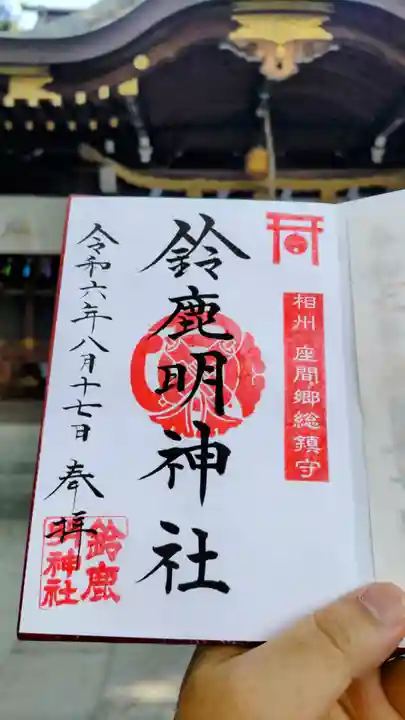 相州 座間郷総鎮守
鈴鹿明神社
令和六年八月十七日 奉拝
鈴鹿
明神社